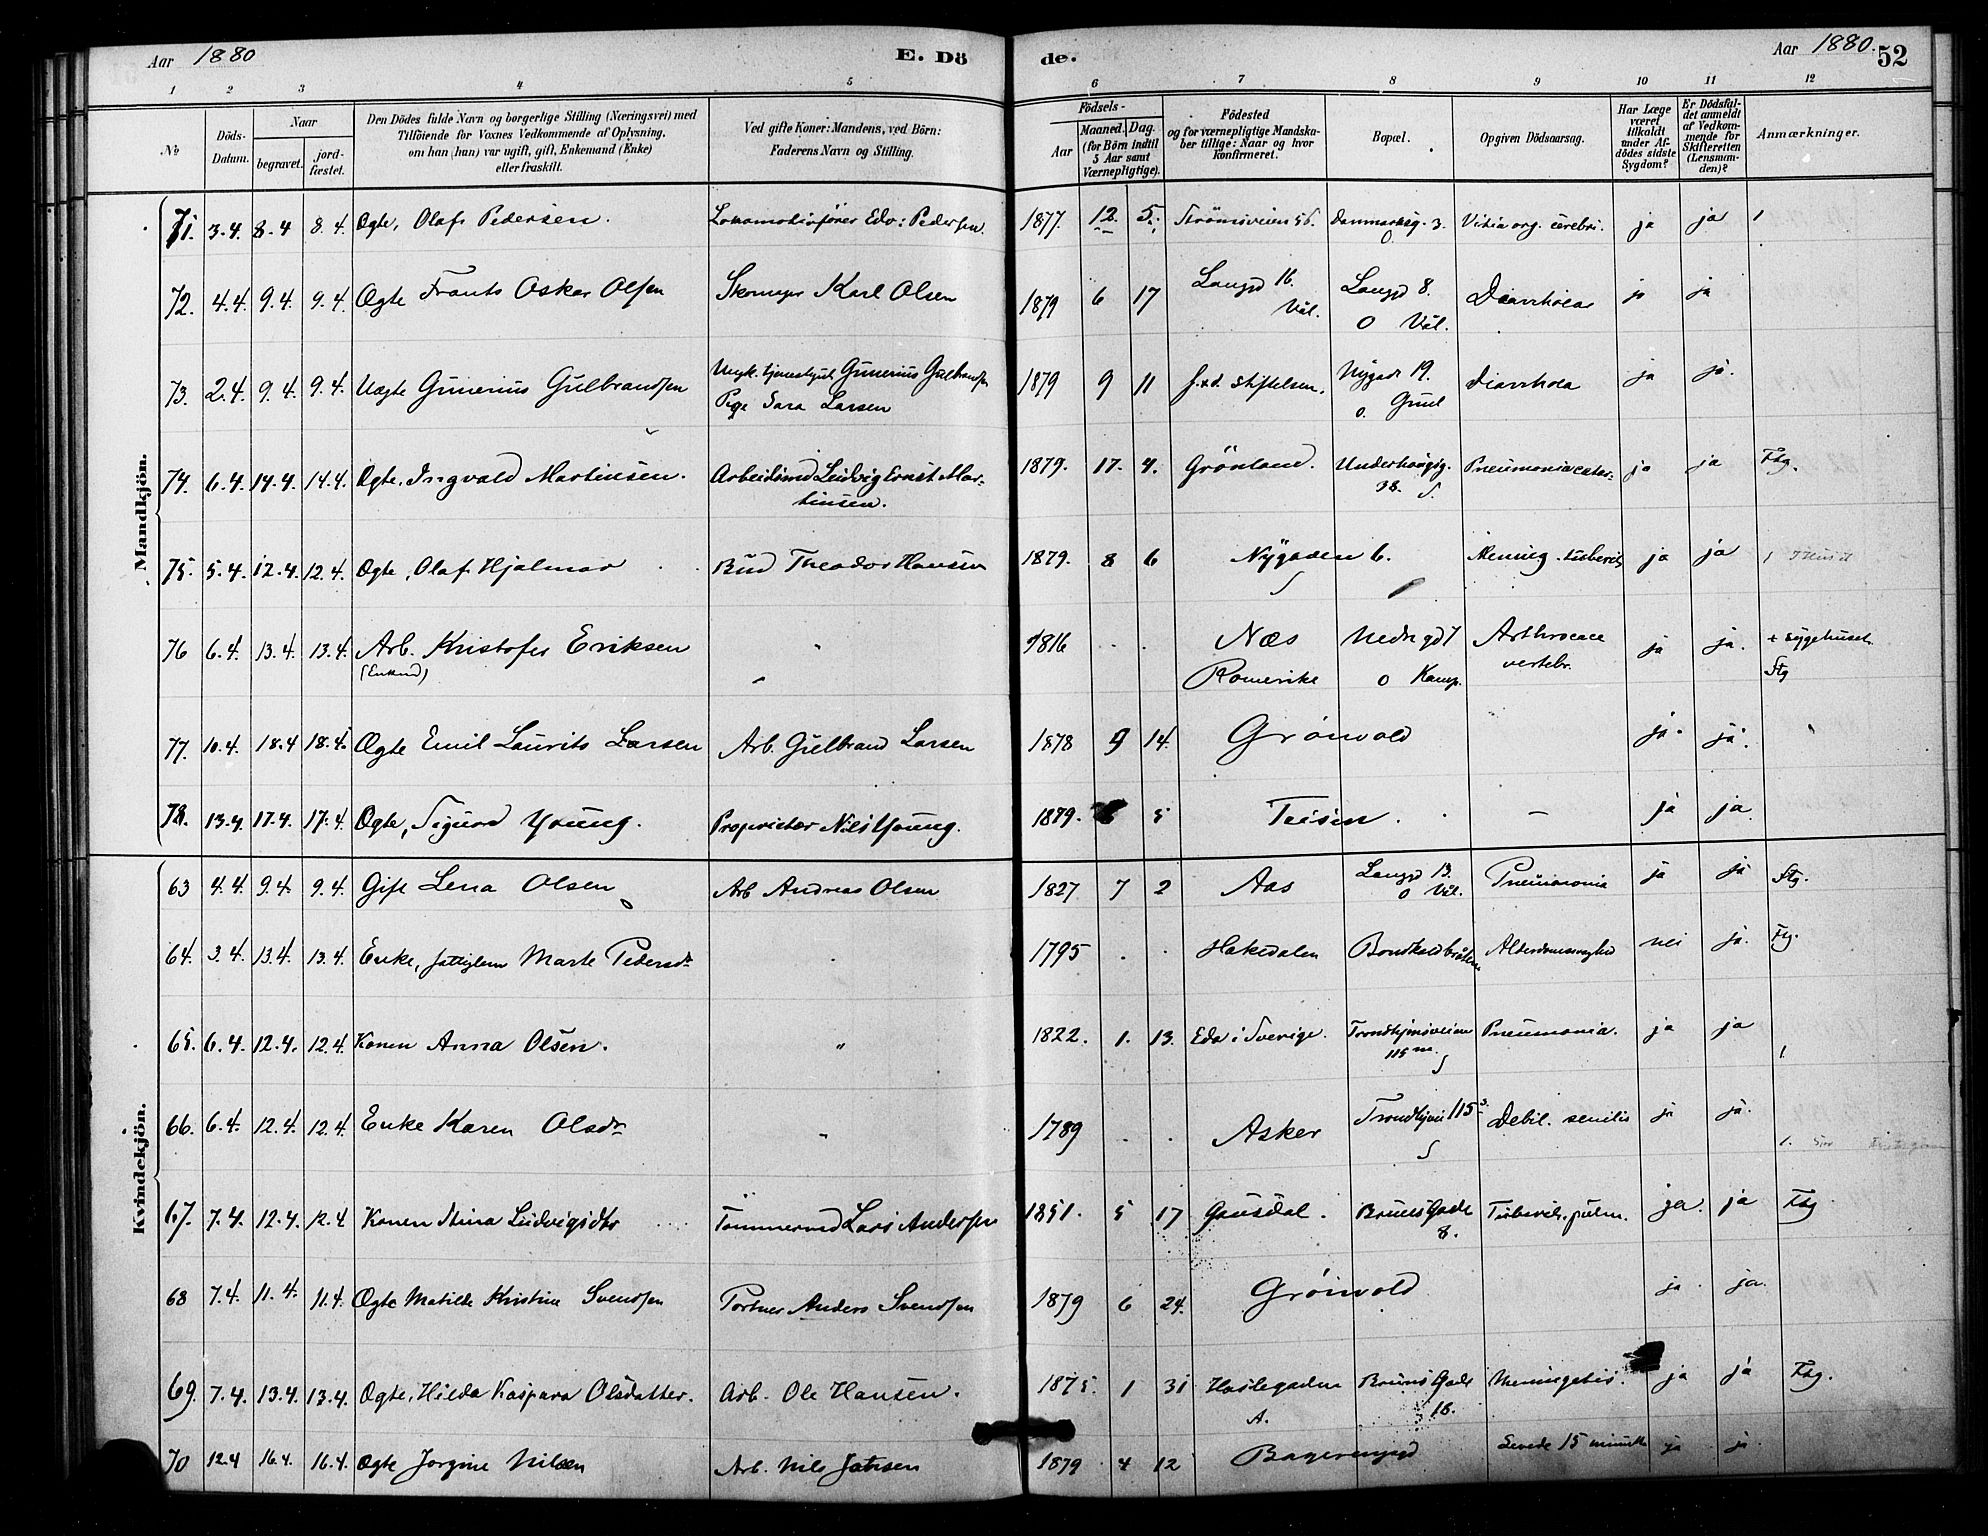 Aar 1880 E. Dö de. Aar 1880. 52
1 2 3 4 5 6 7 8 9 10 11 12
No
Döds-Datum.
Naar
begravet. jordfæstet.
Den Dödes fulde Navn og borgerlige Stilling (Næringsvei) med
Tilföiende for Voxnes Vedkommende af Oplysning,
om han (hun) var ugift, gift, Enkemand (Enke)
eller fraskilt.
Ved gifte Koner: Mandens, ved Börn:
Faderens Navn og Stilling.
Födsels-
Aar Maaned. Dag.
(for Börn indtil
5 Aar samt
Værnepligtige).
Födested
og for værnepligtige Mandskaber tillige: Naar og hvor
konfirmeret.
Bopæl.
Opgiven Dödsaarsag.
Har Læge
været
tilkaldt
under Afdödes sidste
Sygdom?
Er Dödsfaldet anmeldt
af Vedkommende for
Skifteretten
(Lensmanden)?
Anmærkninger.
Mandkjön.
71. 3.4. 8.4 8.4. Ægte, Olaf Pedersen. Lokomotivförer Edv: Pedersen. 1877. 12. 5. Strömsveien 56. Danmarksg. 3. Vitia org. cerebri. ja ja
72. 4.4. 9.4. 9.4. Ægte Frants Oskar Olsen Karl Olsen 1879 6 17 Langgd 16. Vål. Langgd 8. O Vål. Diarrhoea ja ja
73. 2.4. 9.4. 9.4. Uægte Gunerius Gulbrandsen Ungk. tjenestgut Gunerius Gulbrandsen
Pige Sara Larsen 1879 9 11 f. & d. Stiftelsen. Nygad 19. o. Grønl Diarrhoea ja ja.
74. 6.4. 14.4. 14.4. Ægte, Ingvald Martinsen. Arbeidsmd Ludvig Ernst Martinsen. 1879. 17. 4. Grönland. Underhaugsg. 38. Pneumonia catar. ja ja Ftg.
75. 5.4. 12.4. 12.4. Ægte, Olaf Hjalmar Bud Theodor Hansen 1879. 8 6 Nygaden 6. Mening. tubercul. ja ja
76 6.4. 13.4. 13.4. Arb. Kristofer Eriksen
(Enkmd) " 1816 Næs
Romerike Nedregd 7
O Kamp. Arthrocace
vertebr. ja ja. + Sygehuset.
Ftg
77. 10.4. 18.4 18.4. Ægte Emil Laurits Larsen Arb. Gulbrand Larsen 1878 9 14. Grönvold ja. ja.
78. 13.4. 17.4. 17.4. Ægte, Sigurd Young. Proprietær Nils Young. 1879. 5 Teisen. — ja ja
Kvindekjön.
63 4.4. 9.4. 9.4. Gift Lena Olsen Arb Andreas Olsen 1827 7 2 Aas Langgd 13. O Vål. Pneumonia ja ja Ftg.
64. 3.4. 13.4. 13.4. Enke, fattiglem Marte Pedersdr 1795 Hakedalen Alderdomssvaghed nei ja. Ftg.
65. 6.4. 12.4. 12.4. Konen Anna Olsen. " 1822. 1. 13. Eda i Sverige. Trondhjemsveien
115 m. Pneumonia. ja ja
66. 6.4. 12.4. 12.4. Enke Karen Olsdr " 1789 Asker Trondhjvei 115 Debil. senilis ja ja.
67. 7.4. 12.4. 12.4 Konen Stina Ludvigsdtr Tömmermd Lars Andersen 1851. 5 17 Gausdal. Bruns Gade 8. Tubercul. pulm. ja. ja Ftg
68 7.4. 11.4. 11.4. Ægte Matilde Kristine Svendsen Portner Anders Svendsen 1879 6 24. Grönvold ja ja.
69. 7.4. 13.4. 13.4. Ægte, Hilda Kaspara Olsdatter. Arb. Ole Hansen. 1875. 1 31 Haslegaden A. Bruns Gade 18. Meningetis. ja ja Ftg.
70 12.4 16.4. 16.4. Ægte Jorgine Nilsen Arb. Nils 1879 4 12 Levede 15 minutter ja ja